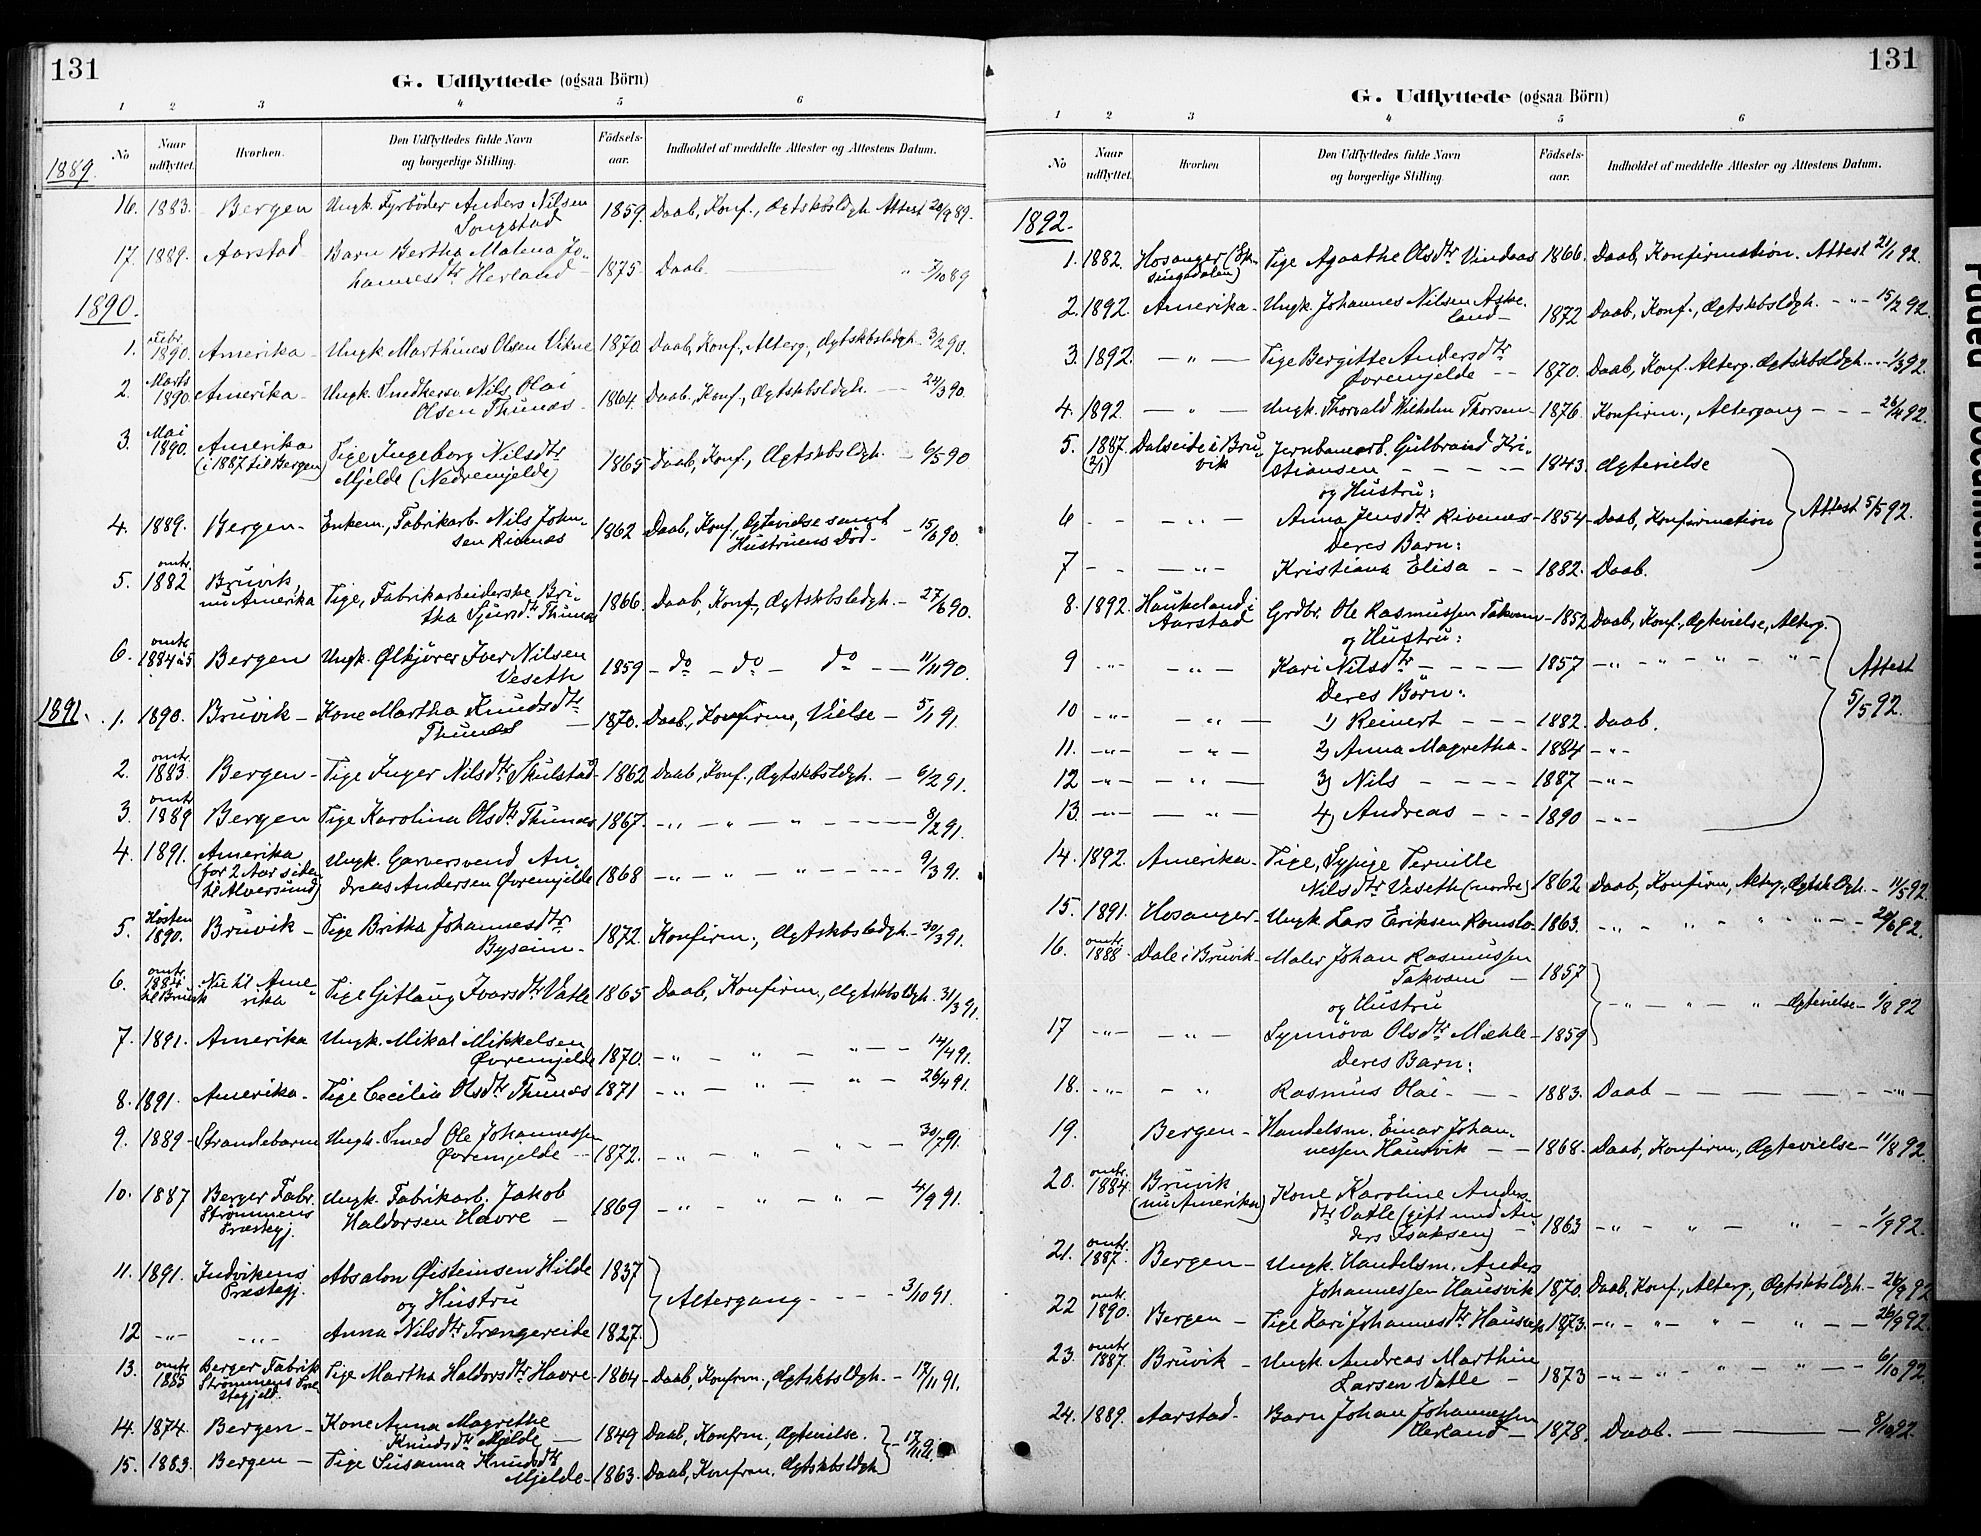 131
G. Udflyttede (ogsaa Börn)
1 2 3 4 5 6
No Naar udflyttet. Hvorhen. Den Udflyttedes fulde Navn og borgerlige Stilling. Födsels-aar. Indholdet af meddelte Attester og Attestens Datum.
1889.
16. 1883. Bergen Ungk. Fyrböder Anders Nilsen 1859. Daab, Konf., Ægtskbsldgh. Attest 20/9 89.
Songstad
17. 1889. Aarstad Barn Bertha Malena Jo-
hannesdtr Herland 1875 Daab " 7/10 89
1890.
1. Febr. 1890. Amerika Ungk Marthines Olsen Vikne 1870. Daab, Konf., Alterg., Ægtskbsledgh. 3/2 90.
2. Marts 1890 Amerika Ungk. Smedkersv. Nils Olai
Olsen Thunes 1864. Daab, Konf., Ægtskbsldgh. 24/3 90.
3. Mai 1890. Amerika
(i 1887 til Bergen) Tige Ingeborg Nilsdtr
Mjelde (Nedremjelde) 1865 Daab, Konf., Ægtskbsldgh. 6/5 90
4. 1889. Bergen Enkem., Fabrikarb. Nils John-
sen Rivenes 1862 Daab, Konf., Ægtevielse samt
Hustruens Död. 15/6 90.
5. omtr. 1882 Bruvik,
nu Amerika Tige, Fabrikarbeiderske Bri-
tha Sjursdtr Thunes 1866. Daab, Konf., Ægtskbsledgh. 27/6 90.
6. omtr. 1884 à 5 Bergen Ungk. Ølkjörer Iver Nilsen
Veseth 1859 do do do 11/11 90.
1891.
1. 1890. Bruvik Kone Martha Knudsdtr
Thunes 1870. Daab, Konfirm, Vielse 5/1 91.
2. omtr. 1883. Bergen Tige Inger Nilsdtr Skulstad 1862 Daab, Konf., Ægtskbsldgh. 6/2 91.
3. omtr 1889 Bergen Tige Karolina Olsdtr Thunes 1867. " " " 8/2 91.
4. 1891. Amerika
(for 2 Aar siden
til Alversund) Ungk. Garversvend An-
dreas Andersen Øvremjelde 1868 " " " 9/3 91.
5. Hösten 1890. Bruvik Tige Britha Johannesdtr
Byseim 1872. Konfirm., Ægtskbsledgh. 30/3 91.
6. omtr. 1884 til Bruvik Nu til Ame-
rika Tige Gitlaug Ivarsdtr Vatle 1865 Daab, Konfirm., Ægtskbsldgh. 31/3 91.
7. 1891. Amerika Ungk. Mikal Mikkelsen
Øvremjelde 1870. " " " 14/4 91.
8. 1891. Amerika Tige Cecilia Olsdtr Thunes 1871 " " " 26/4 91.
9. 1889 Strandebarm Ungk. Smed Ole Johannessen
Øvremjelde 1872. " " " 30/7 91.
10. 1887 Berger Fabr.
Strömmens
Præstegj. Ungk. Fabrikarb. Jakob
Haldorsen Havre 1869 " " " 4/9 91.
11. 1891. Indvikens
Præstegj. Absalon Øisteinsen Hilde 1837
og Hustru Altergang 3/10 91.
12 " " Anna Nilsdtr Trængereide 1827.
13. omtr 1885 Berger Fabrik
Strömmens Præ-
stegjeld. Tige Martha Haldorsdtr Havre 1864 Daab, Konfrm., Ægtskbsldgh. 17/11 91.
14. 1874. Bergen Kone Anna Magrethe
Knudsdtr Mjelde 1849 Daab, Konfrm., Ægtevielse.
15. 1883. Bergen Tige Susanna Knudsdtr
Mjelde 1863. Daab, Konfrm. Ægtskbsldgh. 17/11 91.
131
G. Udflyttede (ogsaa Börn)
1 2 3 4 5 6
No Naar udflyttet. Hvorhen Den Udflyttedes fulde Navn og borgerlige Stilling. Födsels-aar. Indholdet af meddelte Attester og Attestens Datum.
1892.
1. 1882. Hosanger (Ek-
singedalen) Tige Agaathe Olsdtr Vindaas 1866. Daab, Konfirmation. Attest 21/1 92.
2. 1892. Amerika Ungk. Johannes Nilsen Aske-
land 1872 Daab, Konf., Ægtskbsldgh. " 15/2 92.
3. 1892. " Tige Bergitte Andersdtr
Øvremjelde 1870. Daab, Konf. Alterg. Ægtskbsldgh. 1/3 92.
4. 1892. " Ungk. Thorvald Wilhelm Thorsen 1876. Konfirm., Altergang 26/4 92.
5. 1887. (2/1) Dalseide i Bru-
vik Jernbanearb. Gulbrand Kri-
stiansen 1843. Ægtevielse
og Hustru:
6 " Anna Jensdtr Rivenes 1854 Daab, Konfirmation Attest 5/5 92.
Deres Barn:
7 " Kristiana Elisa 1882. Daab.
8. 1892. Haukeland i
Aarstad Grdbr. Ole Rasmussen Takvam 1852 Daab, Konf., Ægtevielse, Alterg.
og Hustru:
9 " " Kari Nilsdtr 1857 " " " " Attest
Deres Börn:
10 " " 1) Reinert 1882. Daab. 5/5 92.
11. " " 2) Anna Magretha 1884 "
12 " " 3) Nils 1887 "
13. " " 4) Andreas 1890 "
14. 1892. Amerika Tige, Sypige Pernille
Nilsdtr Veseth (nordre) 1862 Daab, Konfirm, Alterg., Ægtsk.ldgh. 11/5 92.
15. 1891. Hosanger Ungk. Lars Eriksen Romslo 1863. " " " " 20/6 92.
16. omtr. 1888. Dale i Bruvik Maler Johan Rasmussen
Takvam 1857
og Hustru " " " Ægtevielse 1/8 92
17 " " Synnöva Olsdtr Mæhle 1859
Deres Barn:
18. " " Rasmus Olai 1883. Daab "
19. Bergen Handelsm. Einar Johan-
nessen Hausvik 1868. Daab, Konfirm., Ægtevielse 11/8 92.
20. omtr. 1884. Bruvik
(nu Amerika) Kone Karoline Anders-
dtr Vatle (gift med An-
ders Isaksen) 1863 " " " " 1/9 92.
21. omtr. 1887. Bergen Ungk. Handelsm. Anders
Johannessen Hausvik 1870. Daab, Konf., Alterg., Ægtskbsldgh. 26/9 92
22 omtr. 1890. Bergen Tige Kari Johannesdtr Hausvik 1873. " " " " 26/9 92.
23. omtr 1887. Bruvik Ungk Andreas Marthin
Larsen Vatle 1873 " " " " 6/10 92.
24. 1889. Aarstad. Barn Johan Johannessen
Herland 1878. Daab. 8/10 92.